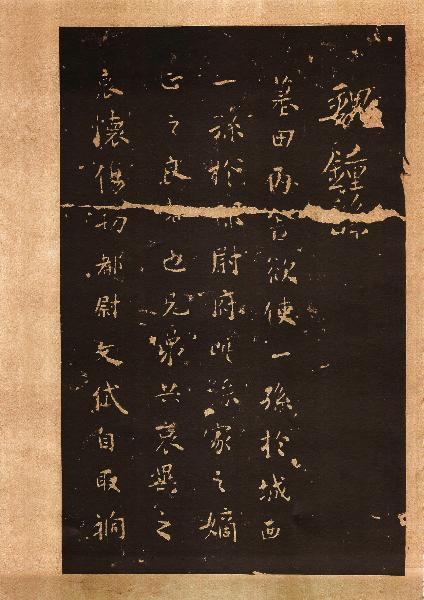 魏鍾繇
墓田丙舍欲使一孫於城西
一孫於都尉府此繇家之嫡
正之良者也兄衆共哀異之
哀懷傷切都尉文岱自取禍